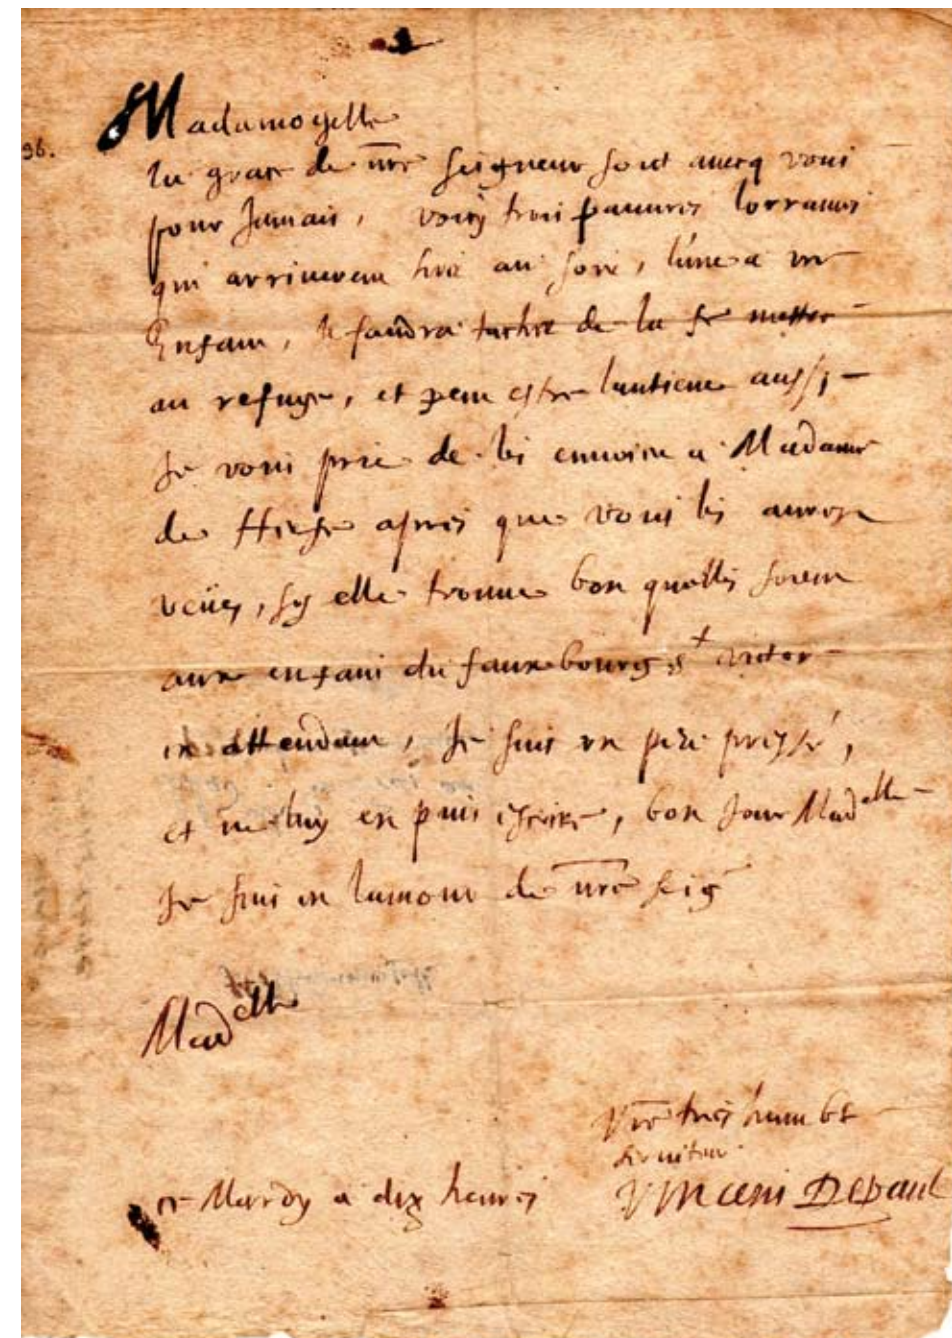 96.
Madamoyselle
la grace de nr̄e seigneur soit avecq vous
pour Jamais, voicy trois pauvres lorraines
qui arriverent hier au soir, l'une a un
Enfant, Il faudra tascher de la se mettre
au refuge, et peut estre lantienne aussi
Je vous prie de les envoier a Madame
de Herse apres que vous les aurez
veües, sy elle trouve bon quelles soient
aux enfans du fauxbourg st victor
en attendant, Je suis un peu pressé,
et ne luy en puis escrire, bon Jour Madelle
Je suis en lamour de nr̄e seig
Madelle
Vr̄e tres humble
serviteur
Vincent Depaul
ce Mardy a dix heures